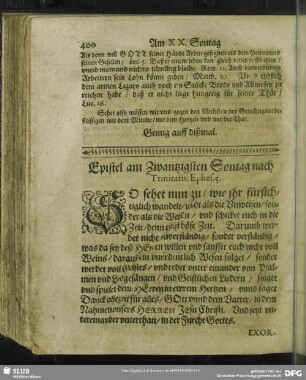 400 Am XX. Sontag
Als dem will GOTT seiner Hände Arbeit gesegnet
seinen Gesellen / Luc. 5. Daß er einem jeden kan gleich und recht thun /
und niemand nichts schuldig bleibe. Rom. 13. Auch
Arbeitern sein Lohn könne geben / Matth. 20.
dem armen Lazaro auch noch ein Stück Brods und Allmosen zu
reichen habe / daß er nicht liege hungerig für seiner Thür /
Luc. 16.
Sehet also müssen wir uns gegen den Nechsten der Gerechtigkeit be-
fleissigen mit dem Munde / mit dem Hertzen und mit der That.
Genug auff dißmal.
Epistel am Zwantzigsten Sontag nach
Trinitatis. Ephes. 5.
SO sehet nun zu / wie ihr fürsich-
tiglich wandelt / nicht als die Unweisen / son-
der als die Weisen / und schicket euch in die
Zeit / denn es ist böse Zeit. Darumb wer-
det nicht unverständig / sonder verständig /
was da sey deß HErren willen / und sauffet euch nicht voll
Weins / darauß ein unordentlich Wesen folget / sonder
werdet voll Geistes / und redet unter einander von Psal-
men und Lobgesängen / und Geistlichen Liedern / singet
und spielet dem HErren in ewrem Hertzen / und saget
Danck allezeit für alles / GOtt und dem Vatter / in dem
Namen unsers HERREN Jesu Christi. Und seyt un-
tereinander unterthan / in der Furcht Gottes.
EXOR.